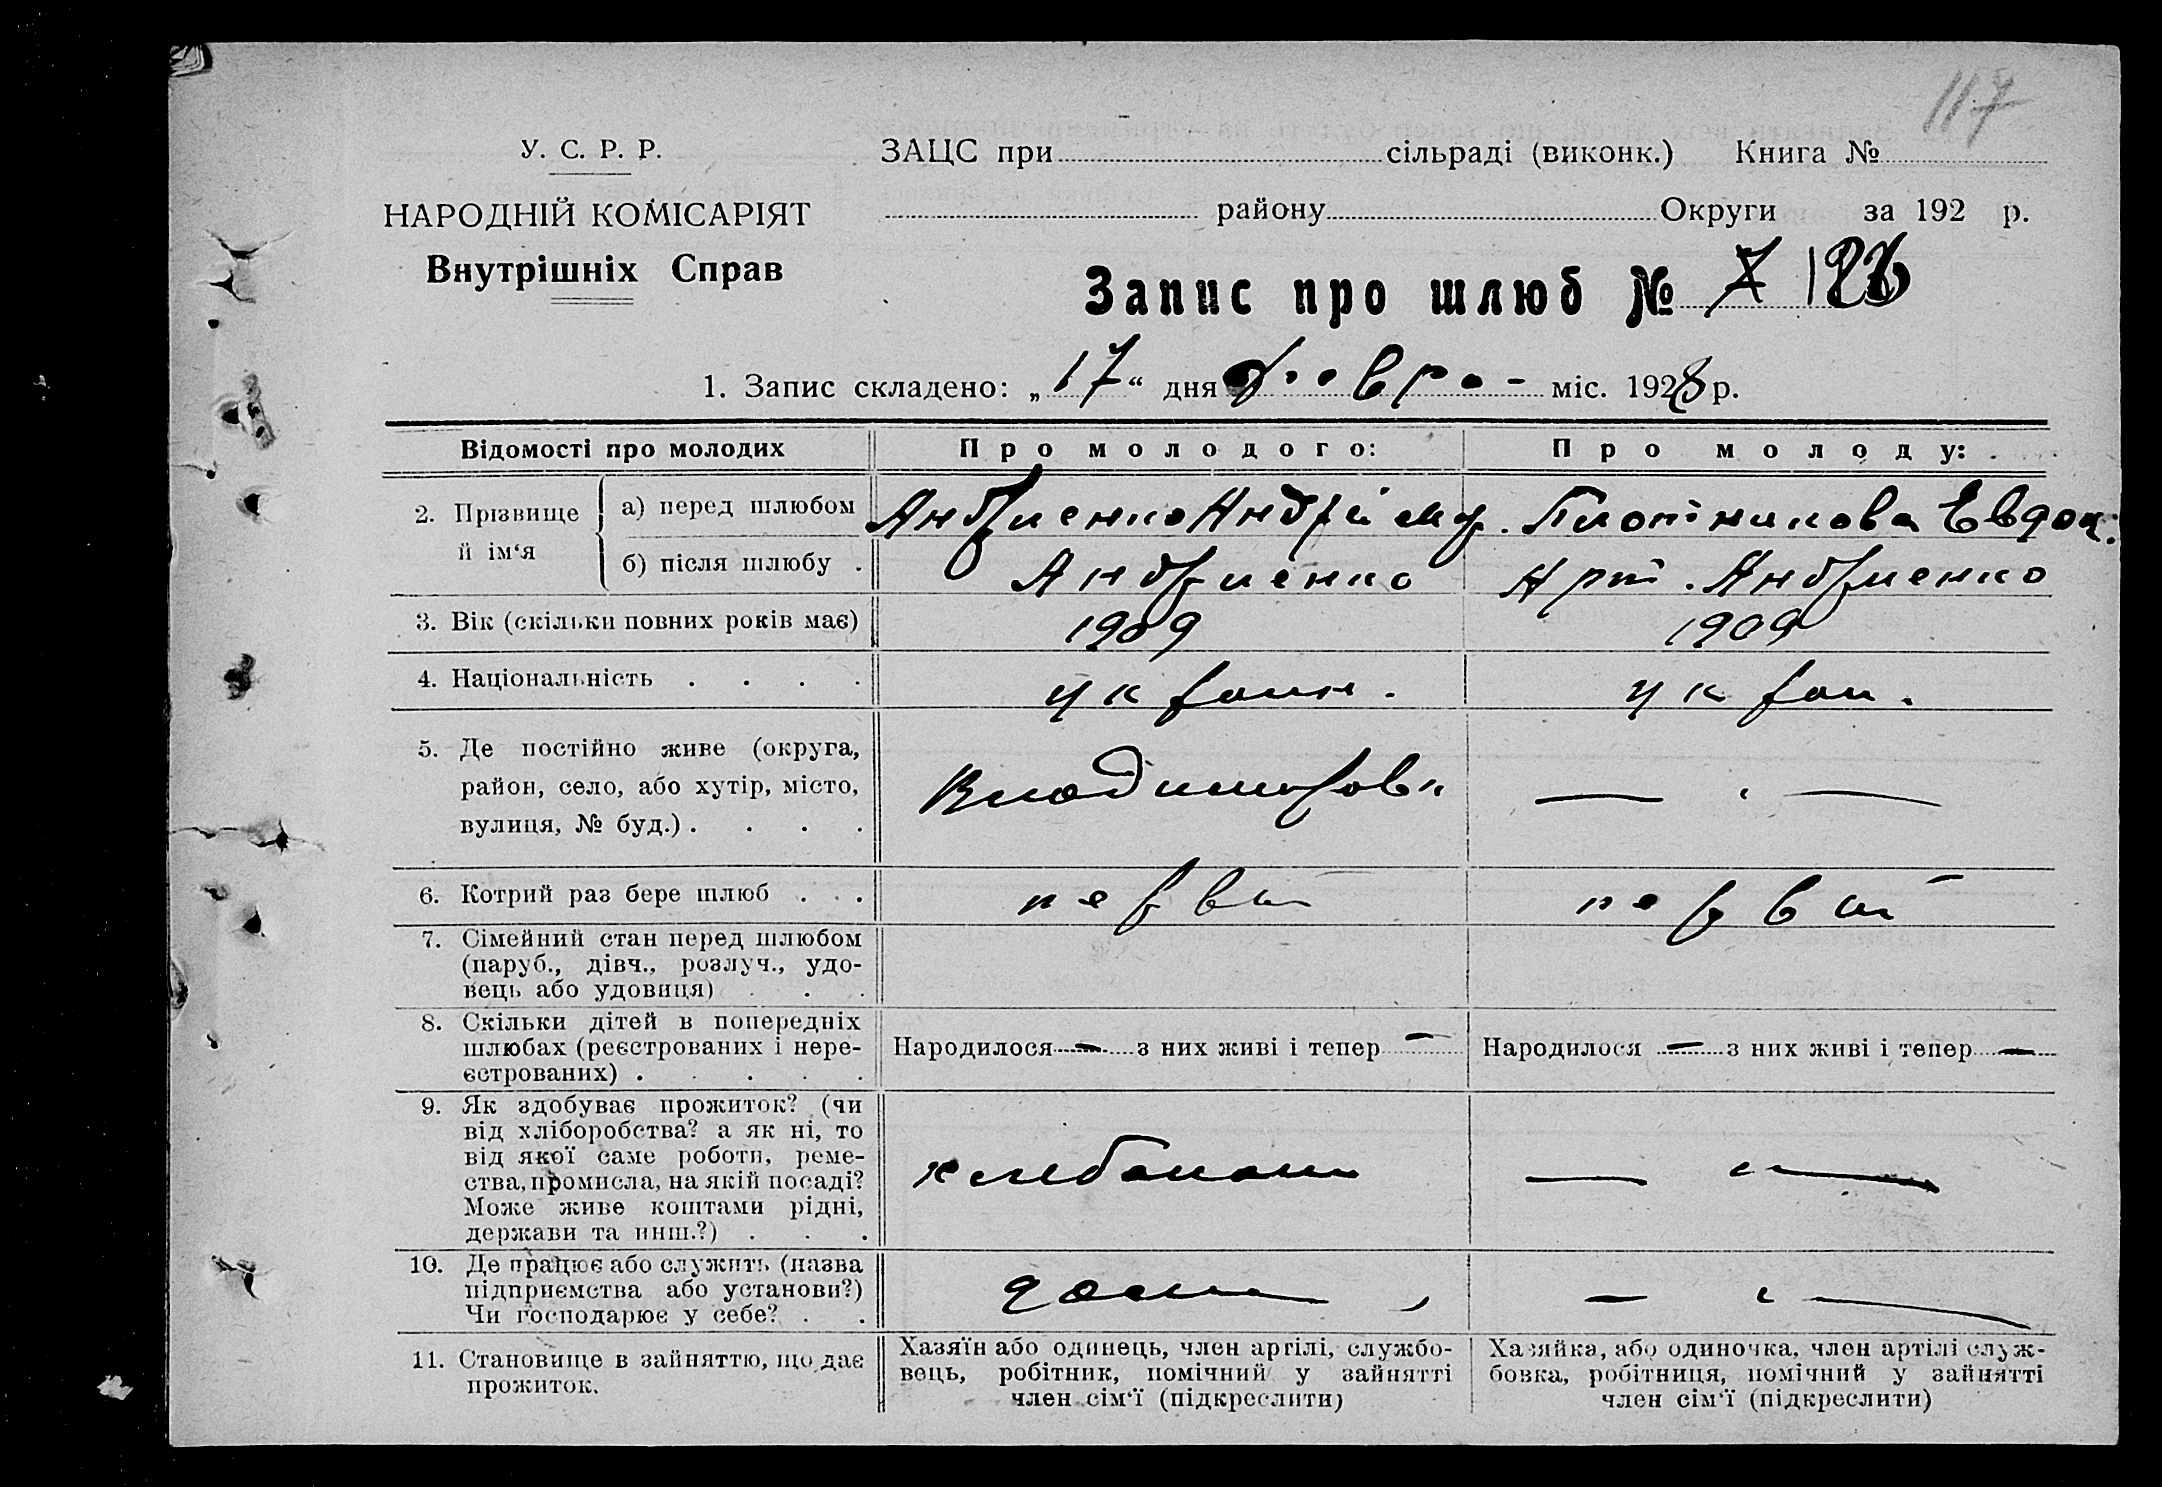 117
У. С. Р. Р.
НАРОДНІЙ КОМІСАРІЯТ
Внутрішніх Справ
ЗАЦС при сільраді (виконк.) Книга №
району Округи за 192 р.
Запис про шлюб № 7
1. Запис складено: „17“ дня февра- міс. 1928 р.
Відомості про молодих Про молодого: Про молоду:
2. Прізвище й ім‘я
а) перед шлюбом Андриенко Андрій Плотникова Евдок.
б) після шлюбу . Андриенко Арт. Андриенко
3. Вік (скільки повних років має) 1909 1909
4. Національність . . . . украин. украи.
5. Де постійно живе (округа,
район, село, або хутір, місто,
вулиця, № буд.) . . . . Владимировк — " —
6. Котрий раз бере шлюб . . . первый первый
7. Сімейний стан перед шлюбом
(паруб., дівч., розлуч., удо-
вець або удовиця) . . .
8. Скільки дітей в попередніх
шлюбах (реєстрованих і нере-
єстрованих) . . . . .
Народилося — з них живі і тепер — Народилося — з них живі і тепер —
9. Як здобуває прожиток? (чи
від хліборобства? а як ні, то
від якої саме роботи, реме-
ства, промисла, на якій посаді?
Може живе коштами рідні,
держави та инш.?) . . .
— " —
10. Де працює або служить (назва
підприємства або установи?)
Чи господарює у себе? . .
— " —
11. Становище в зайняттю, що дає
прожиток.
Хазяїн або одинець, член артілі, службо-
вець, робітник, помічний у зайнятті
член сім‘ї (підкреслити)
Хазяйка, або одиночка, член артілі служ-
бовка, робітниця, помічний у зайнятті
член сім‘ї (підкреслити)